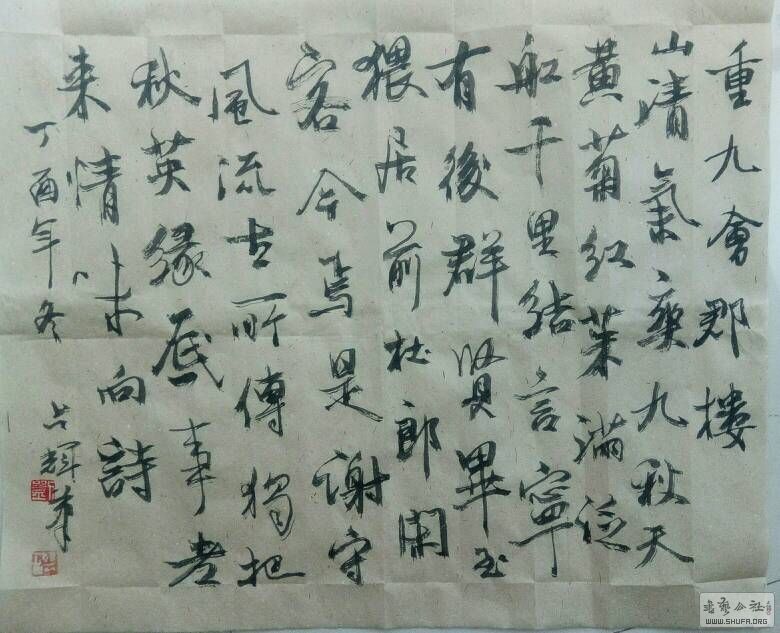 重九會郡樓
山清氣爽九秋天
黄菊红茱满泛
舡千里結言寧
有後群賢畢至
猥居前杜郎闲
客今焉是謝守
風流古所傳獨把
秋英緣底事老
来情味向詩
丁酉年冬
書藝公社
WWW.SHUFA.ORG